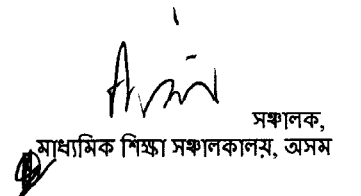 সঞ্চালক,
মাধ্যমিক শিক্ষা সঞ্চালকালয়, অসম